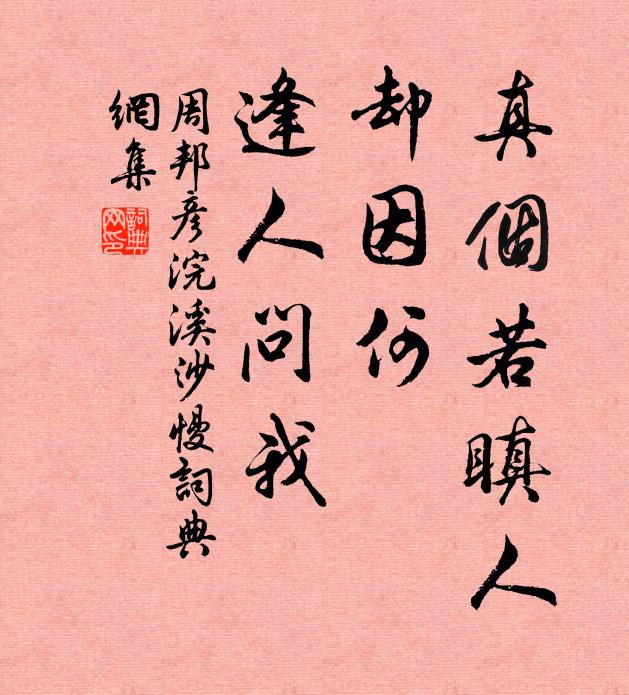 真個若瞋人
却因何
逢人問我
周邦彥浣溪沙慢詞典
網集
詞典
网印